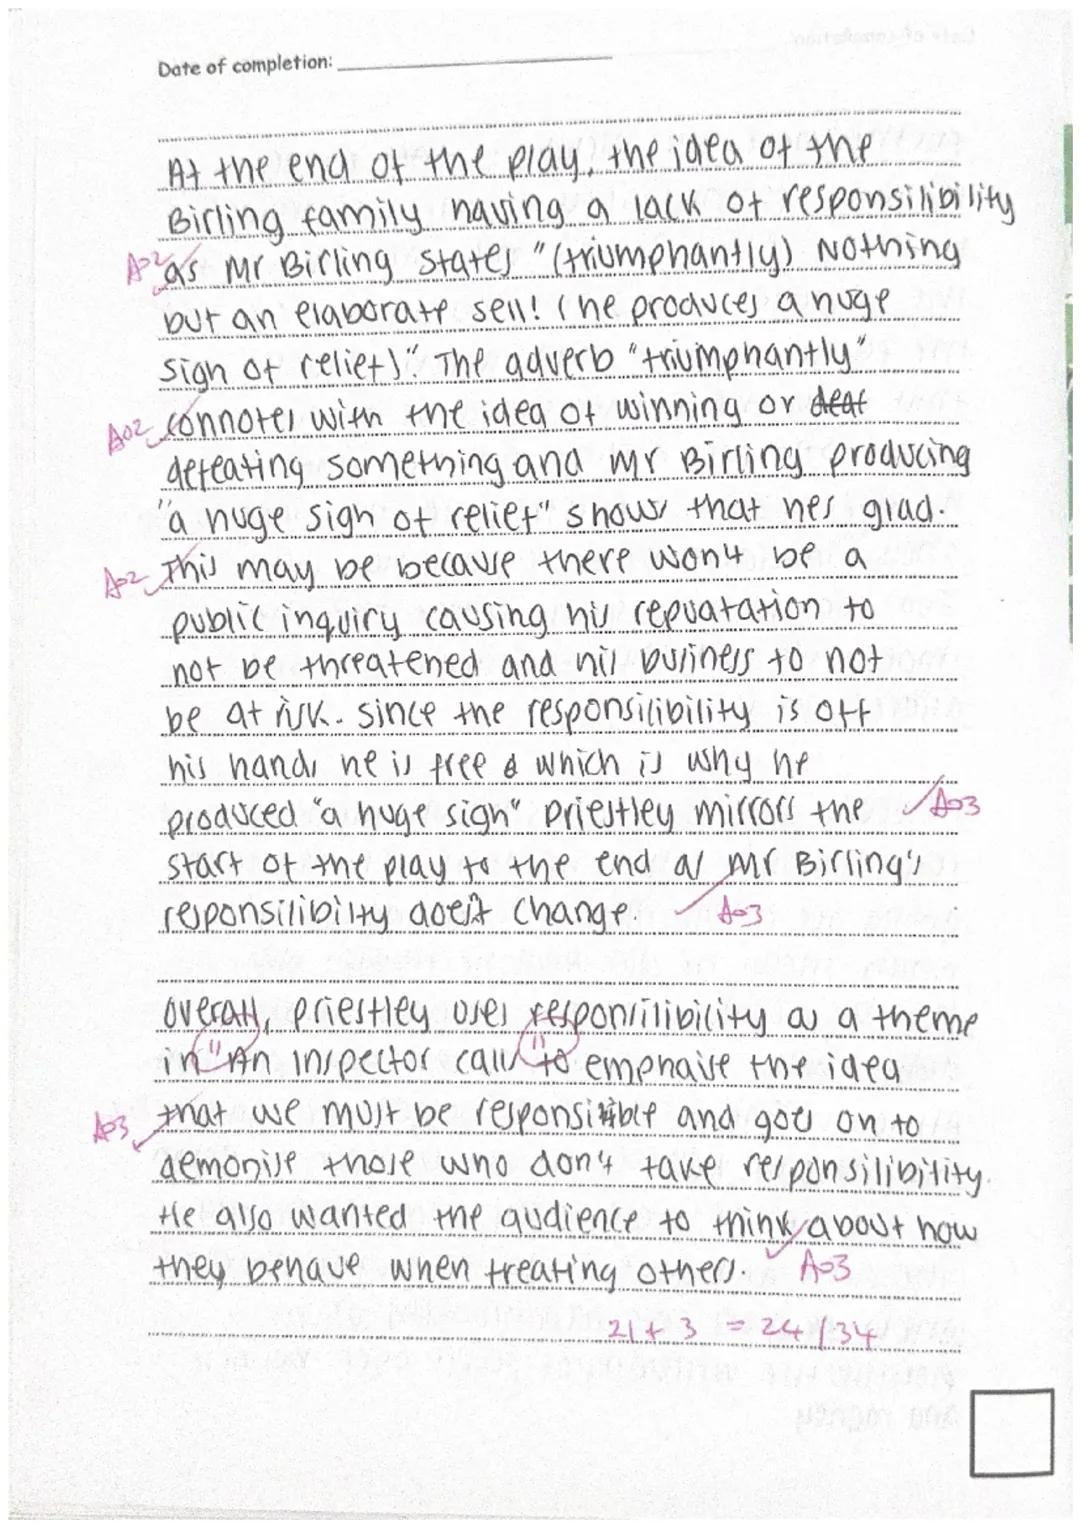 Date of completion:
At the end of the play, the idea of the
Birling family having a lack of responsilibility
AO2 as Mr Birling states "(triumphantly) Nothing
but an elaborate sell! (he produces a huge
sign of relief)". The adverb "triumphantly"
AO2 connotes with the idea of winning or deaf
defeating something and Mr Birling producing
"a huge sign of relief" shows that hes glad.
AO2 This may be because there won't be a
public inquiry causing his repuatation to
not be threatened and his business to not
be at risk. Since the responsilibility is off
his hands he is free & which is why he
produced "a huge sign" Priestley mirrors the AO3
start of the play to the end as Mr Birling's
responsilibilty does't change. AO3
Overall, Priestley uses responsilibility as a theme
in "An Inspector calls" to emphaise the idea
AO3 that we must be responsible and goes on to
demonise those who don't take responsilibility.
He also wanted the audience to think about how
they behave when treating others. AO3
21 + 3 = 24 / 34